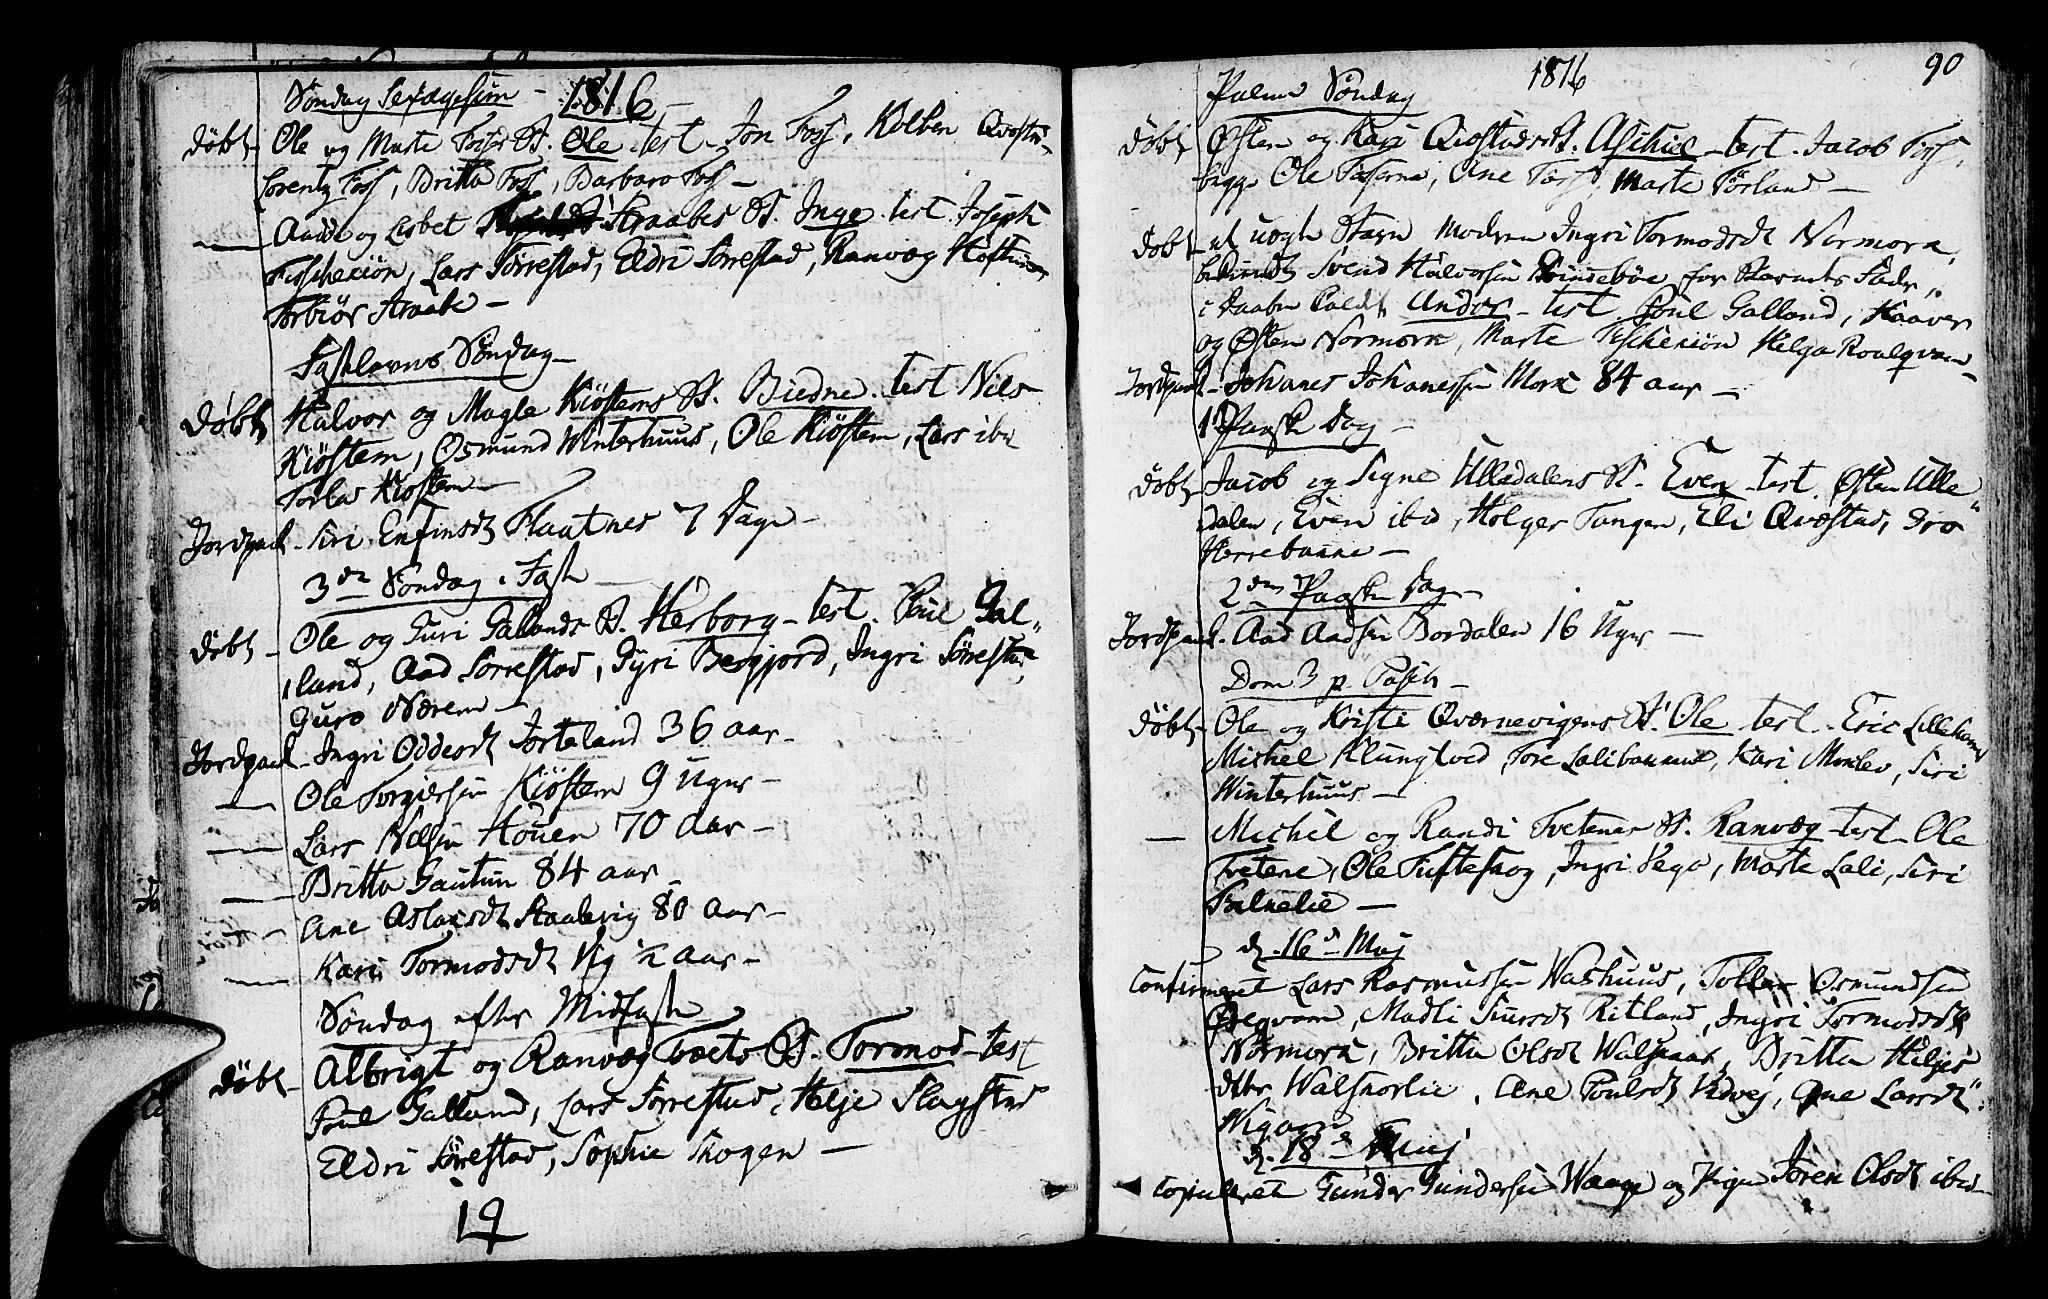 1816
Søndag Sexagesim
Døbt Ole og Marte Fosses B. Ole test. Jon Foss, Kolben
Lorentz Foss, Britta Foss, Barbara Foss
Aad og Lisbet Straabes B. Inge test. Joseph
Fischeriön, Lars Sørrestad, Eldri Sørrestad, Ranvæg
Torbiør Straabe
Fastelavns Søndag
Døbt Halvor og Magle Kiöstems B. test Nils
Kiöstem, Osmund Winterhuus, Ole Kiöstem, Lars ibid
Torlas Kiöstem
Jordpaak. Siri Enfinsd Flaatnes 7 Dage
3de Søndag i Faste
Døbt Ole og Guri Galands B. Herborg test. Poul Gal„
land, Aad Sørrestad, Gyri Bergjord, Ingri Sørrestad,
Guro Nærem
Jordpaak. Ingri Oddsd 36 aar
Ole Torgiersen Kiöstem 9 Uger
Lars Nilsen Houen 70 aar
Britta Gautun 84 aar
Ane Aslaksdt Staalevig 80 aar
Kari Tormodsdt Vig 1/2 aar
Søndag efter Midfaste
Døbt Albrigt og Ranvæg Tvæits B. Tormod test
Poul Galland, Lars Sørrestad, Helje Slagstad
Eldri Sørrestad, Sophie Skogen
19
1816
90
Palme Søndag
Døbt Østen og Kari Qvæstads B. Aschiel test. Jacob Foss,
begge Ole, Ane Foss, Marte Førland
Døbt et uegte Barn Moderen Ingri Tormodsdt Normork,
Svend Halvorsen for Barnets Fader„
i Daaben kaldt Andor test Poul Galland, Haaver
og Østen Normork, Marte Fischeriön Helga Roalqvam
Jordpaak. Johanes Johanessen Mork 84 aar
1 Paaske Dag
Døbt Jacob og Signe Ulledalens B. Even test. Østen Ulle„
dalen, Even ibid, Holger Tangen, Eli Qvæstad, Gro
Herrebanne
2den Paaske Dag
Jordpaak. Aad Aadsen Bordalen 16 Uger
Dom 3 p. Pasch
Døbt Ole og Kristi Qværnevigens B. Ole test. Eric Lilleham
Michel Klungtved Tore Lalibanne, Kari Monlev, Siri
Winterhuus
Michel og Randi Tvetenes B. Ranvæg test Ole
Tvetene, Ole Tufteskog, Ingri Vego, Marte Lali, Siri
d. 16d Maj
Confirmeret Lars Rasmussen Washuus, Osmundsen
Øreqvam, Madli Siursdt Ritland, Ingri Tormodsdt
Normork, Britta Olsdt Walskaar, Britta Heljes
dtter Walsnorlie, Ane Poulsdt Vidvej, Ane Larsdt
Wigane
d. 18d Maj
Copuleret Gunder Gundersen Waage og Pigen Søren Olsdt ibid